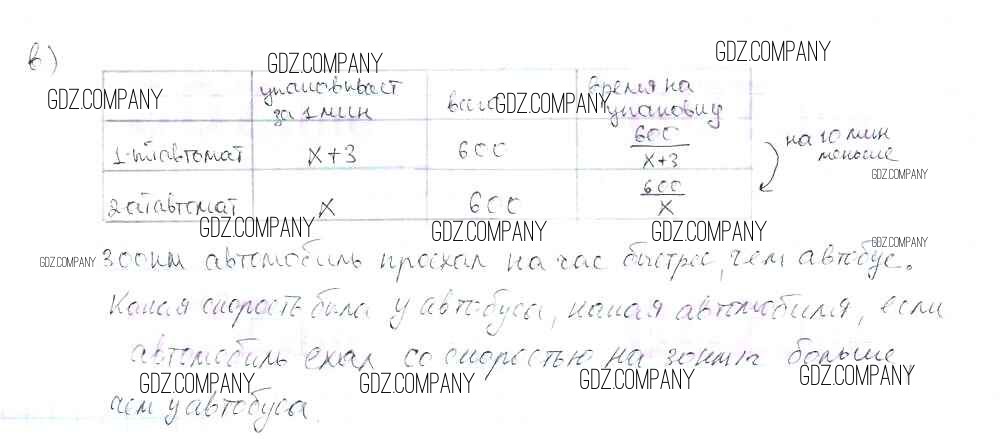 в)
GDZ.COMPANY GDZ.COMPANY
GDZ.COMPANY упаковывает за 1 мин всего GDZ.COMPANY время на упаковку
1-ый автомат x+3 600 600/x+3 на 10 мин меньше
GDZ.COMPANY
2-ой автомат x 600 600/x
GDZ.COMPANY GDZ.COMPANY GDZ.COMPANY
GDZ.COMPANY 300км автомобиль проехал на час быстрее, чем автобус. GDZ.COMPANY
Какая скорость была у автобуса, какая автомобиля, если
автомобиль ехал со скоростью на 30км/ч больше
GDZ.COMPANY GDZ.COMPANY GDZ.COMPANY GDZ.COMPANY
чем у автобуса.